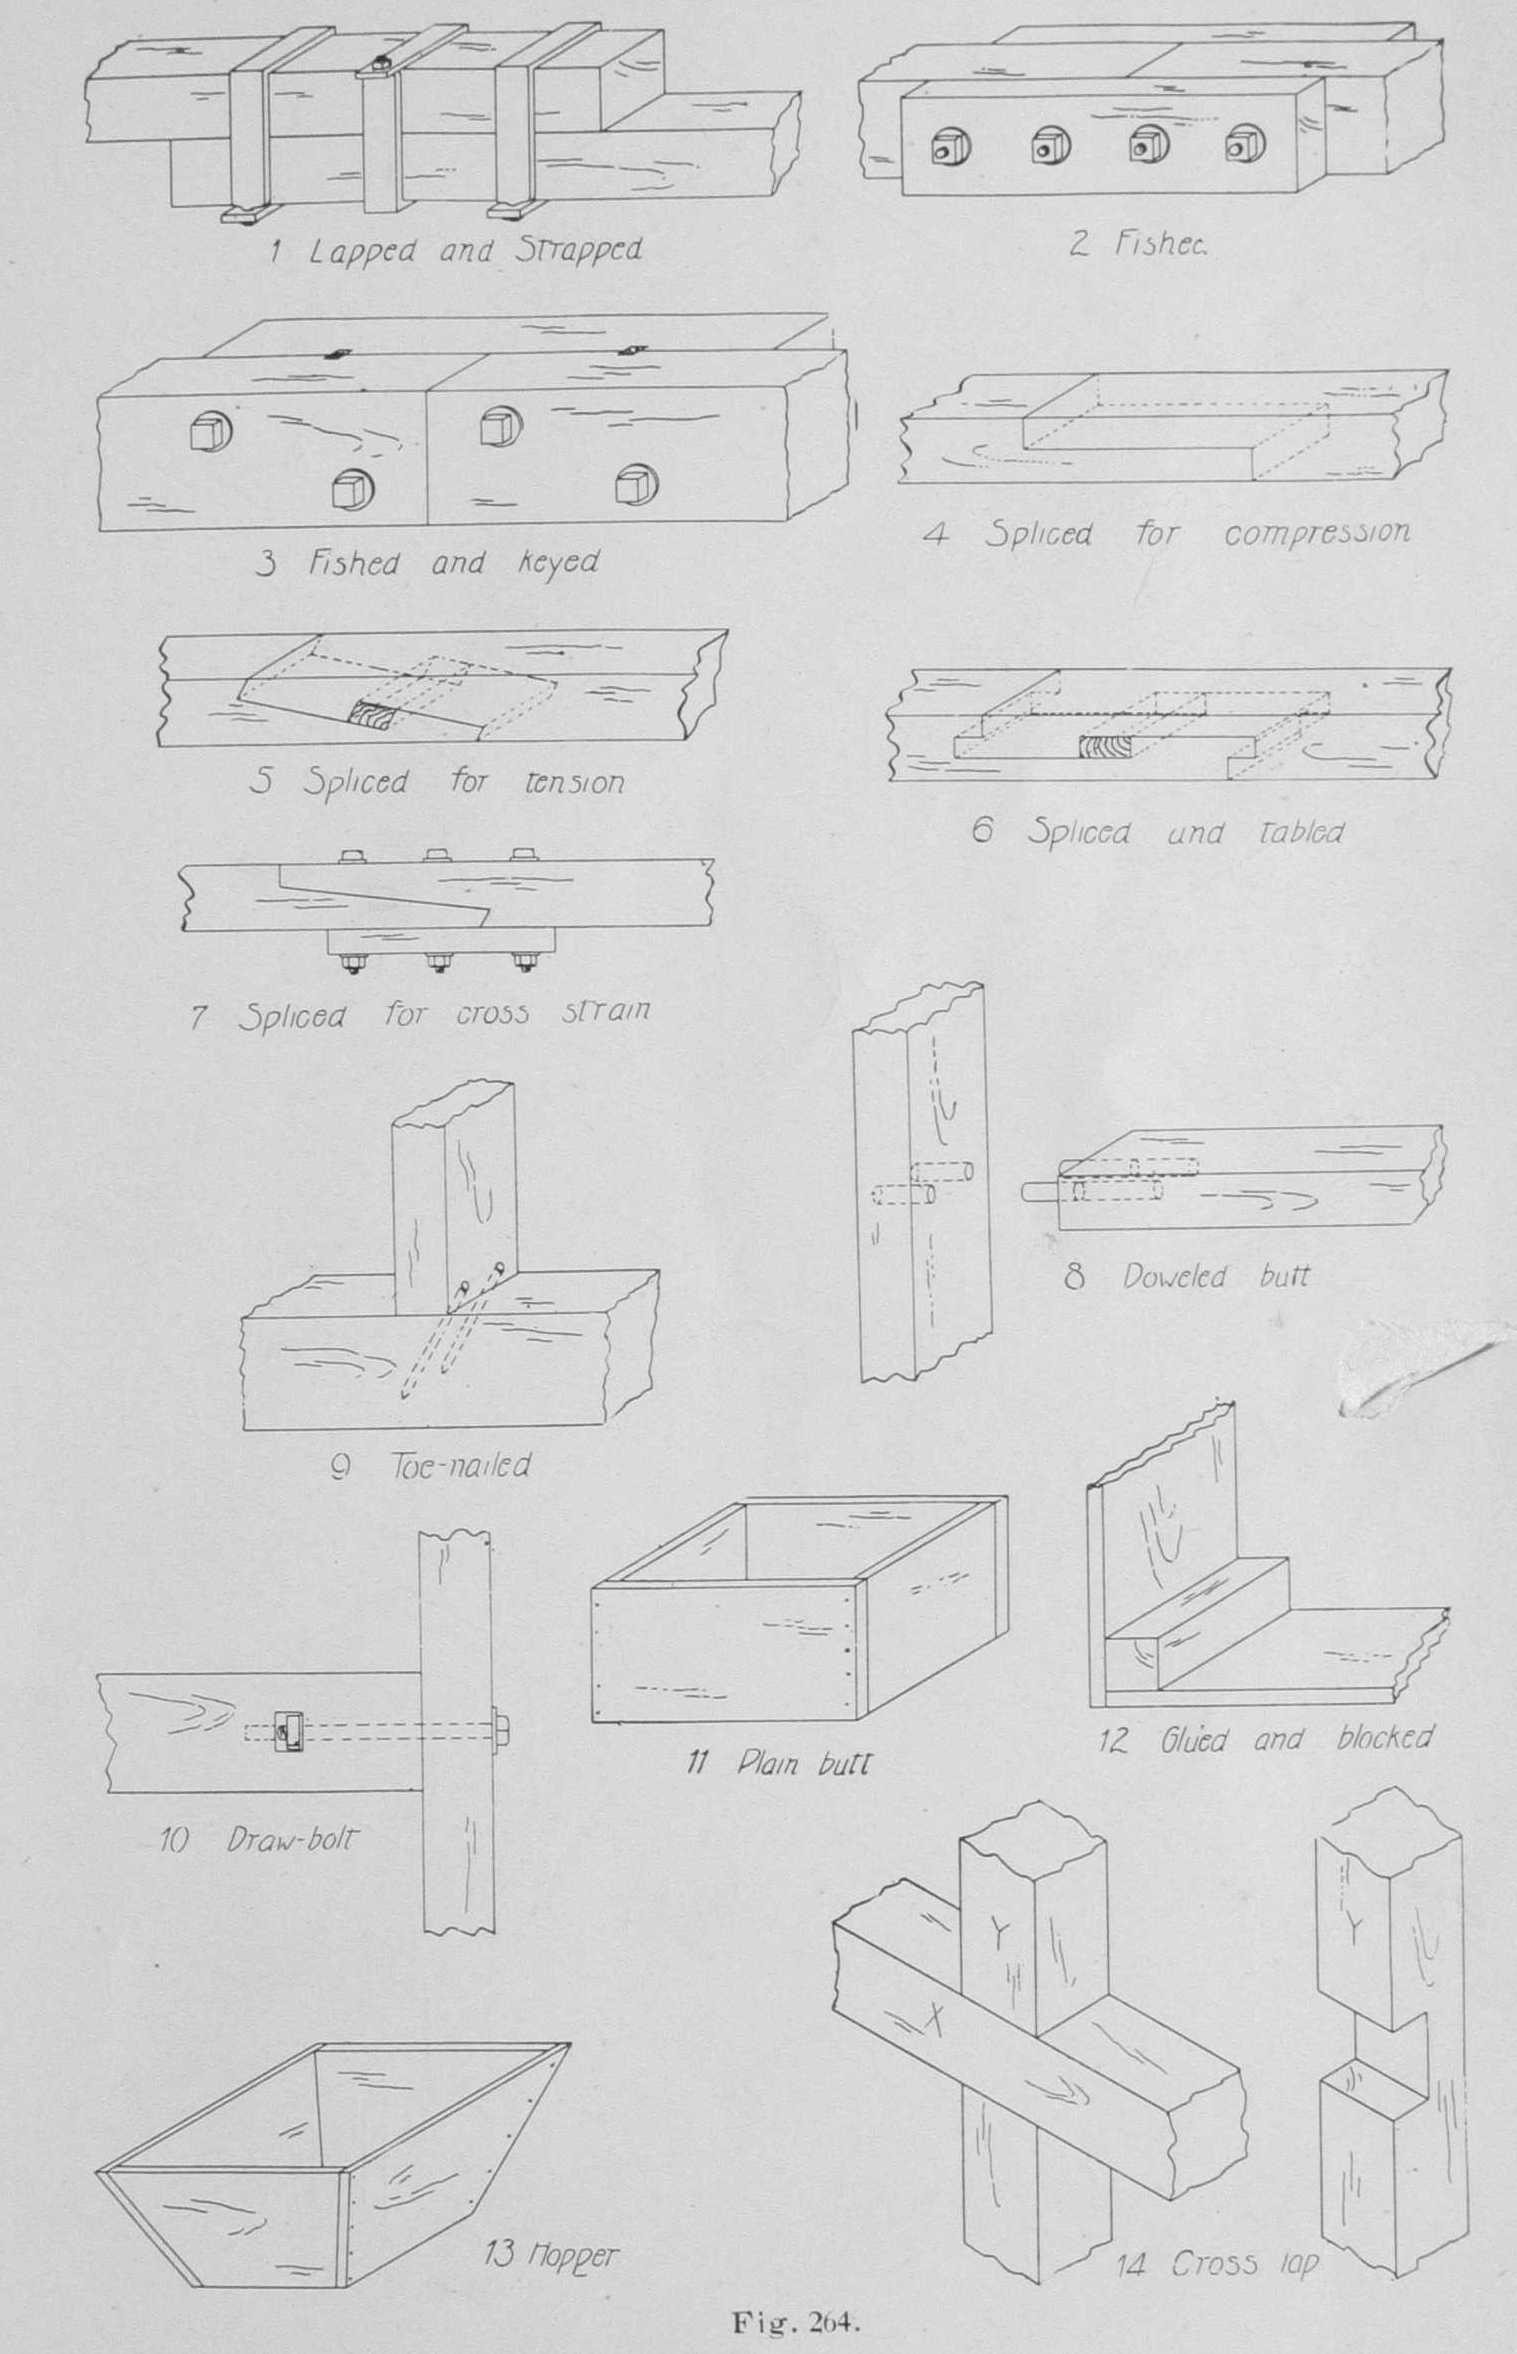 1 Lapped and Strapped
2 Fished
3 Fished and keyed
4 Spliced for compression
5 Spliced for tension
6 Spliced and tabled
7 Spliced for cross strain
8 Doweled butt
9 Toe-nailed
10 Draw-bolt
11 Plain butt
12 Glued and blocked
Y
Y
X
13 Hopper
14 Cross lap
Fig. 264.